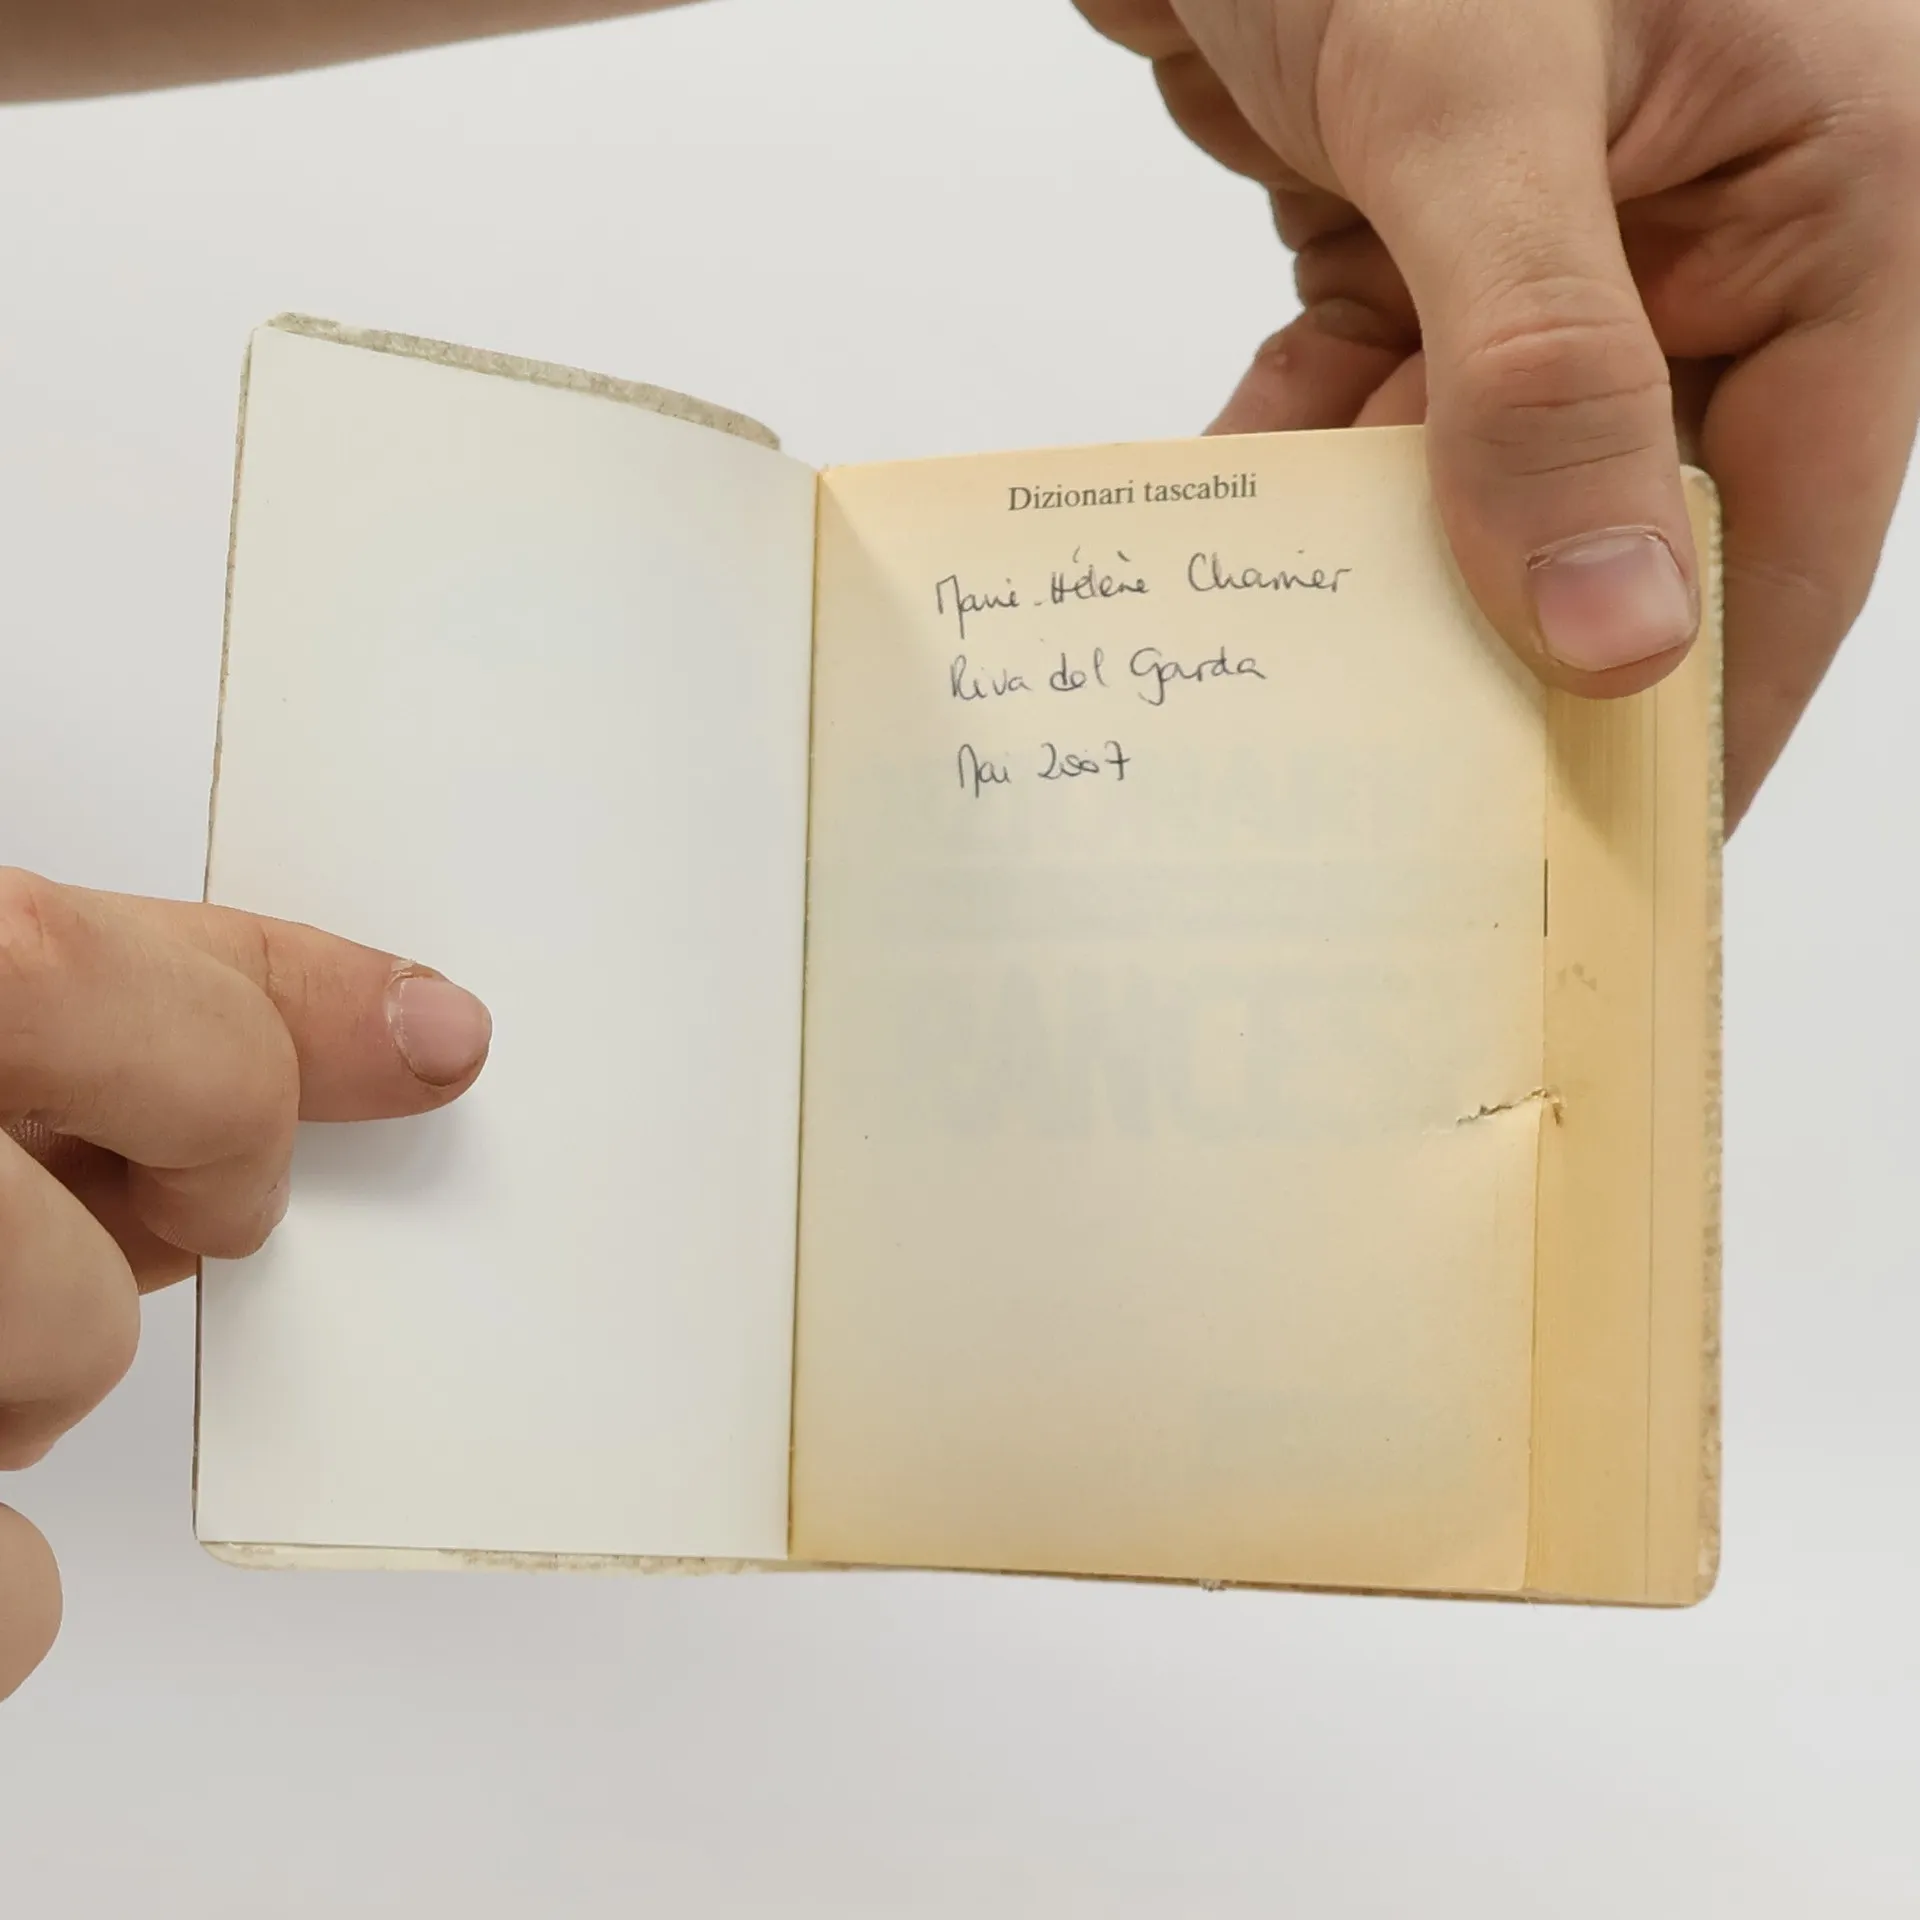 Dizionari tascabili
Marie-Hélène
Riva del Garda
Mai 2007